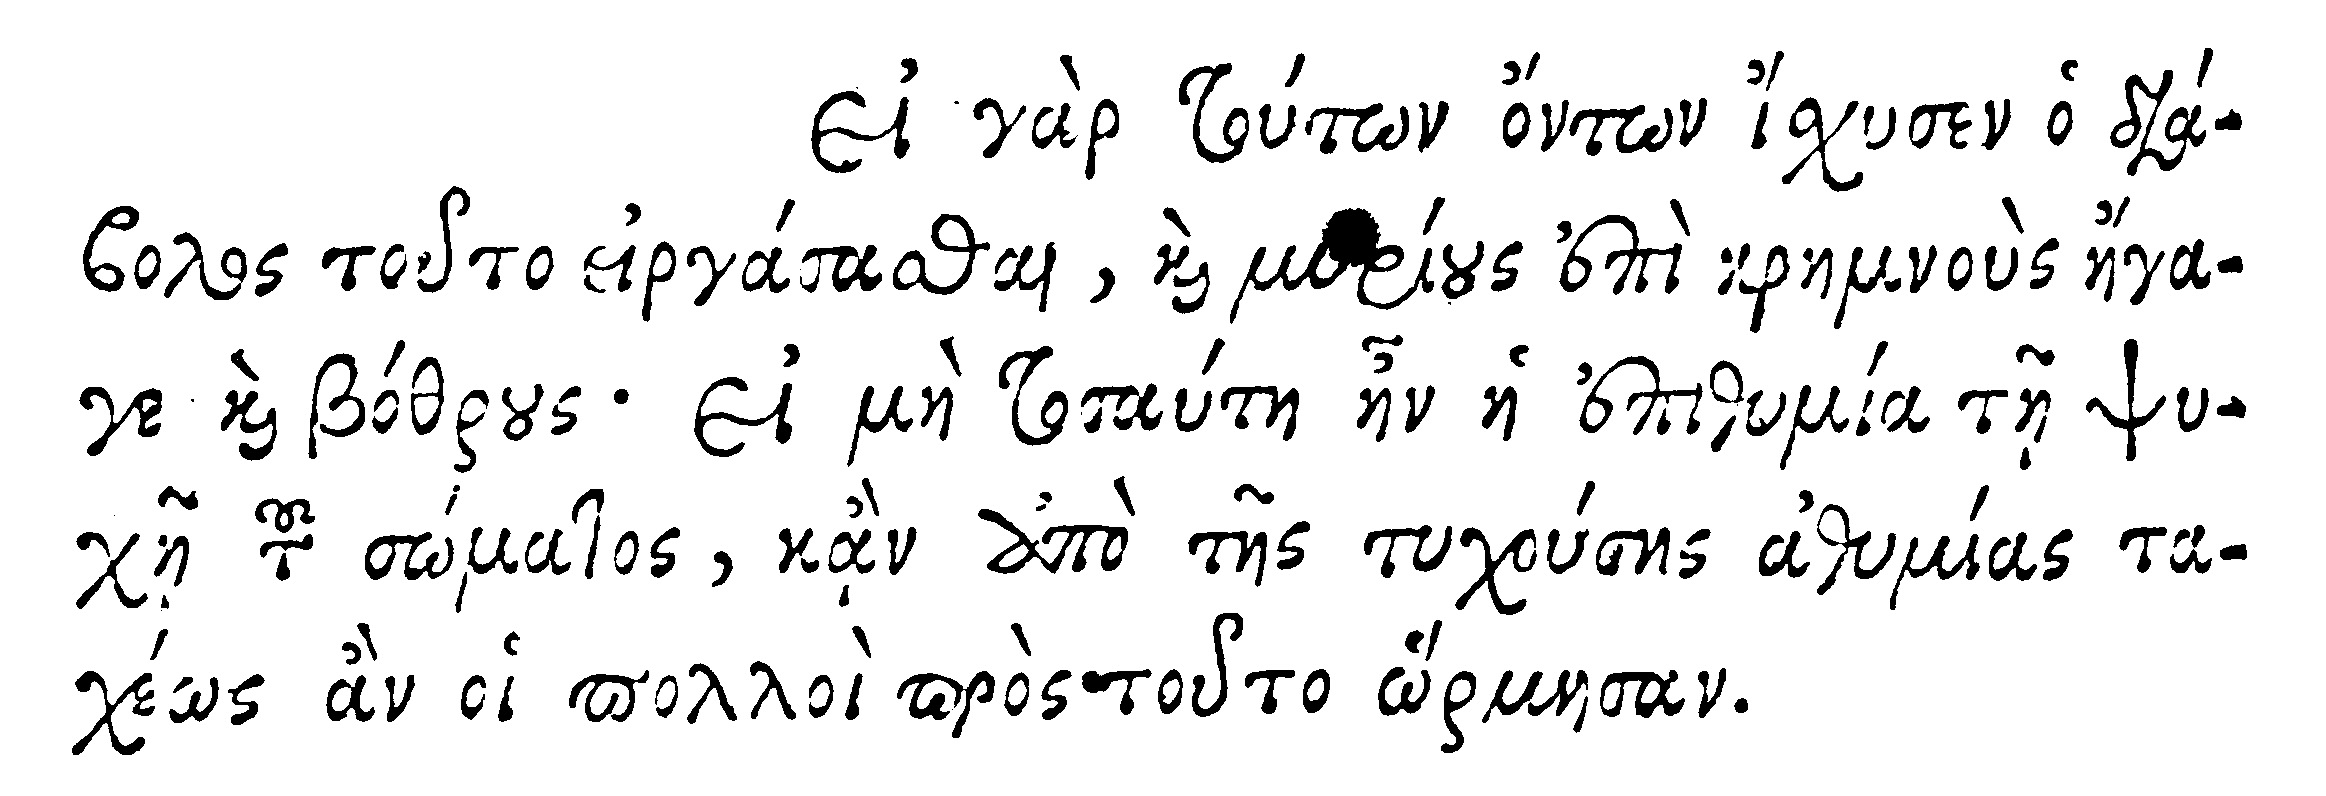 Εἰ γὰρ τούτων ὄντων ἴσχυσεν ὁ διά-
βολος τοῦτο εἰργάσασθαι, καὶ μυρίους ἐπὶ κρημνοὺς ἤγα-
γε καὶ βόθρους· Εἰ μὴ τοσαύτη ἦν ἡ ἐπιθυμία τῇ ψυ-
χῇ τοῦ σώματος, κᾂν ἀπὸ τῆς τυχούσης ἀθυμίας τα-
χέως ἂν οἱ πολλοὶ πρὸς τοῦτο ὥρμησαν.